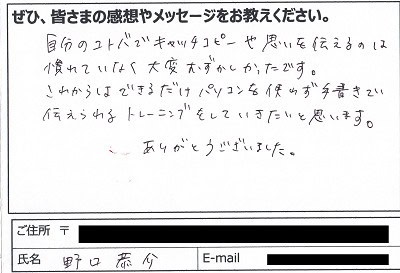 ぜひ、皆さまの感想やメッセージをお教えください。
自分のコトバでキャッチコピーや思いを伝えるのは
慣れていなく大変むずかしかったです。
これからはできるだけパソコンを使わず手書きで
伝えられるトレーニングをしていきたいと思います。
ありがとうございました。
ご住所 〒
氏名 野口 恭介 E-mail